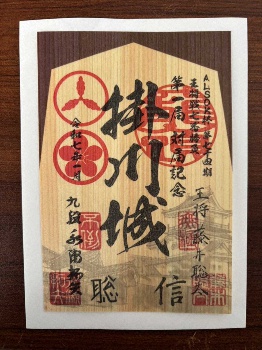 ALSOK杯 第七十四期
王将戦七番勝負
第一局 対局記念
掛川城
王将 藤井聡太
令和七年一月
九段 永瀬拓矢
信
聡